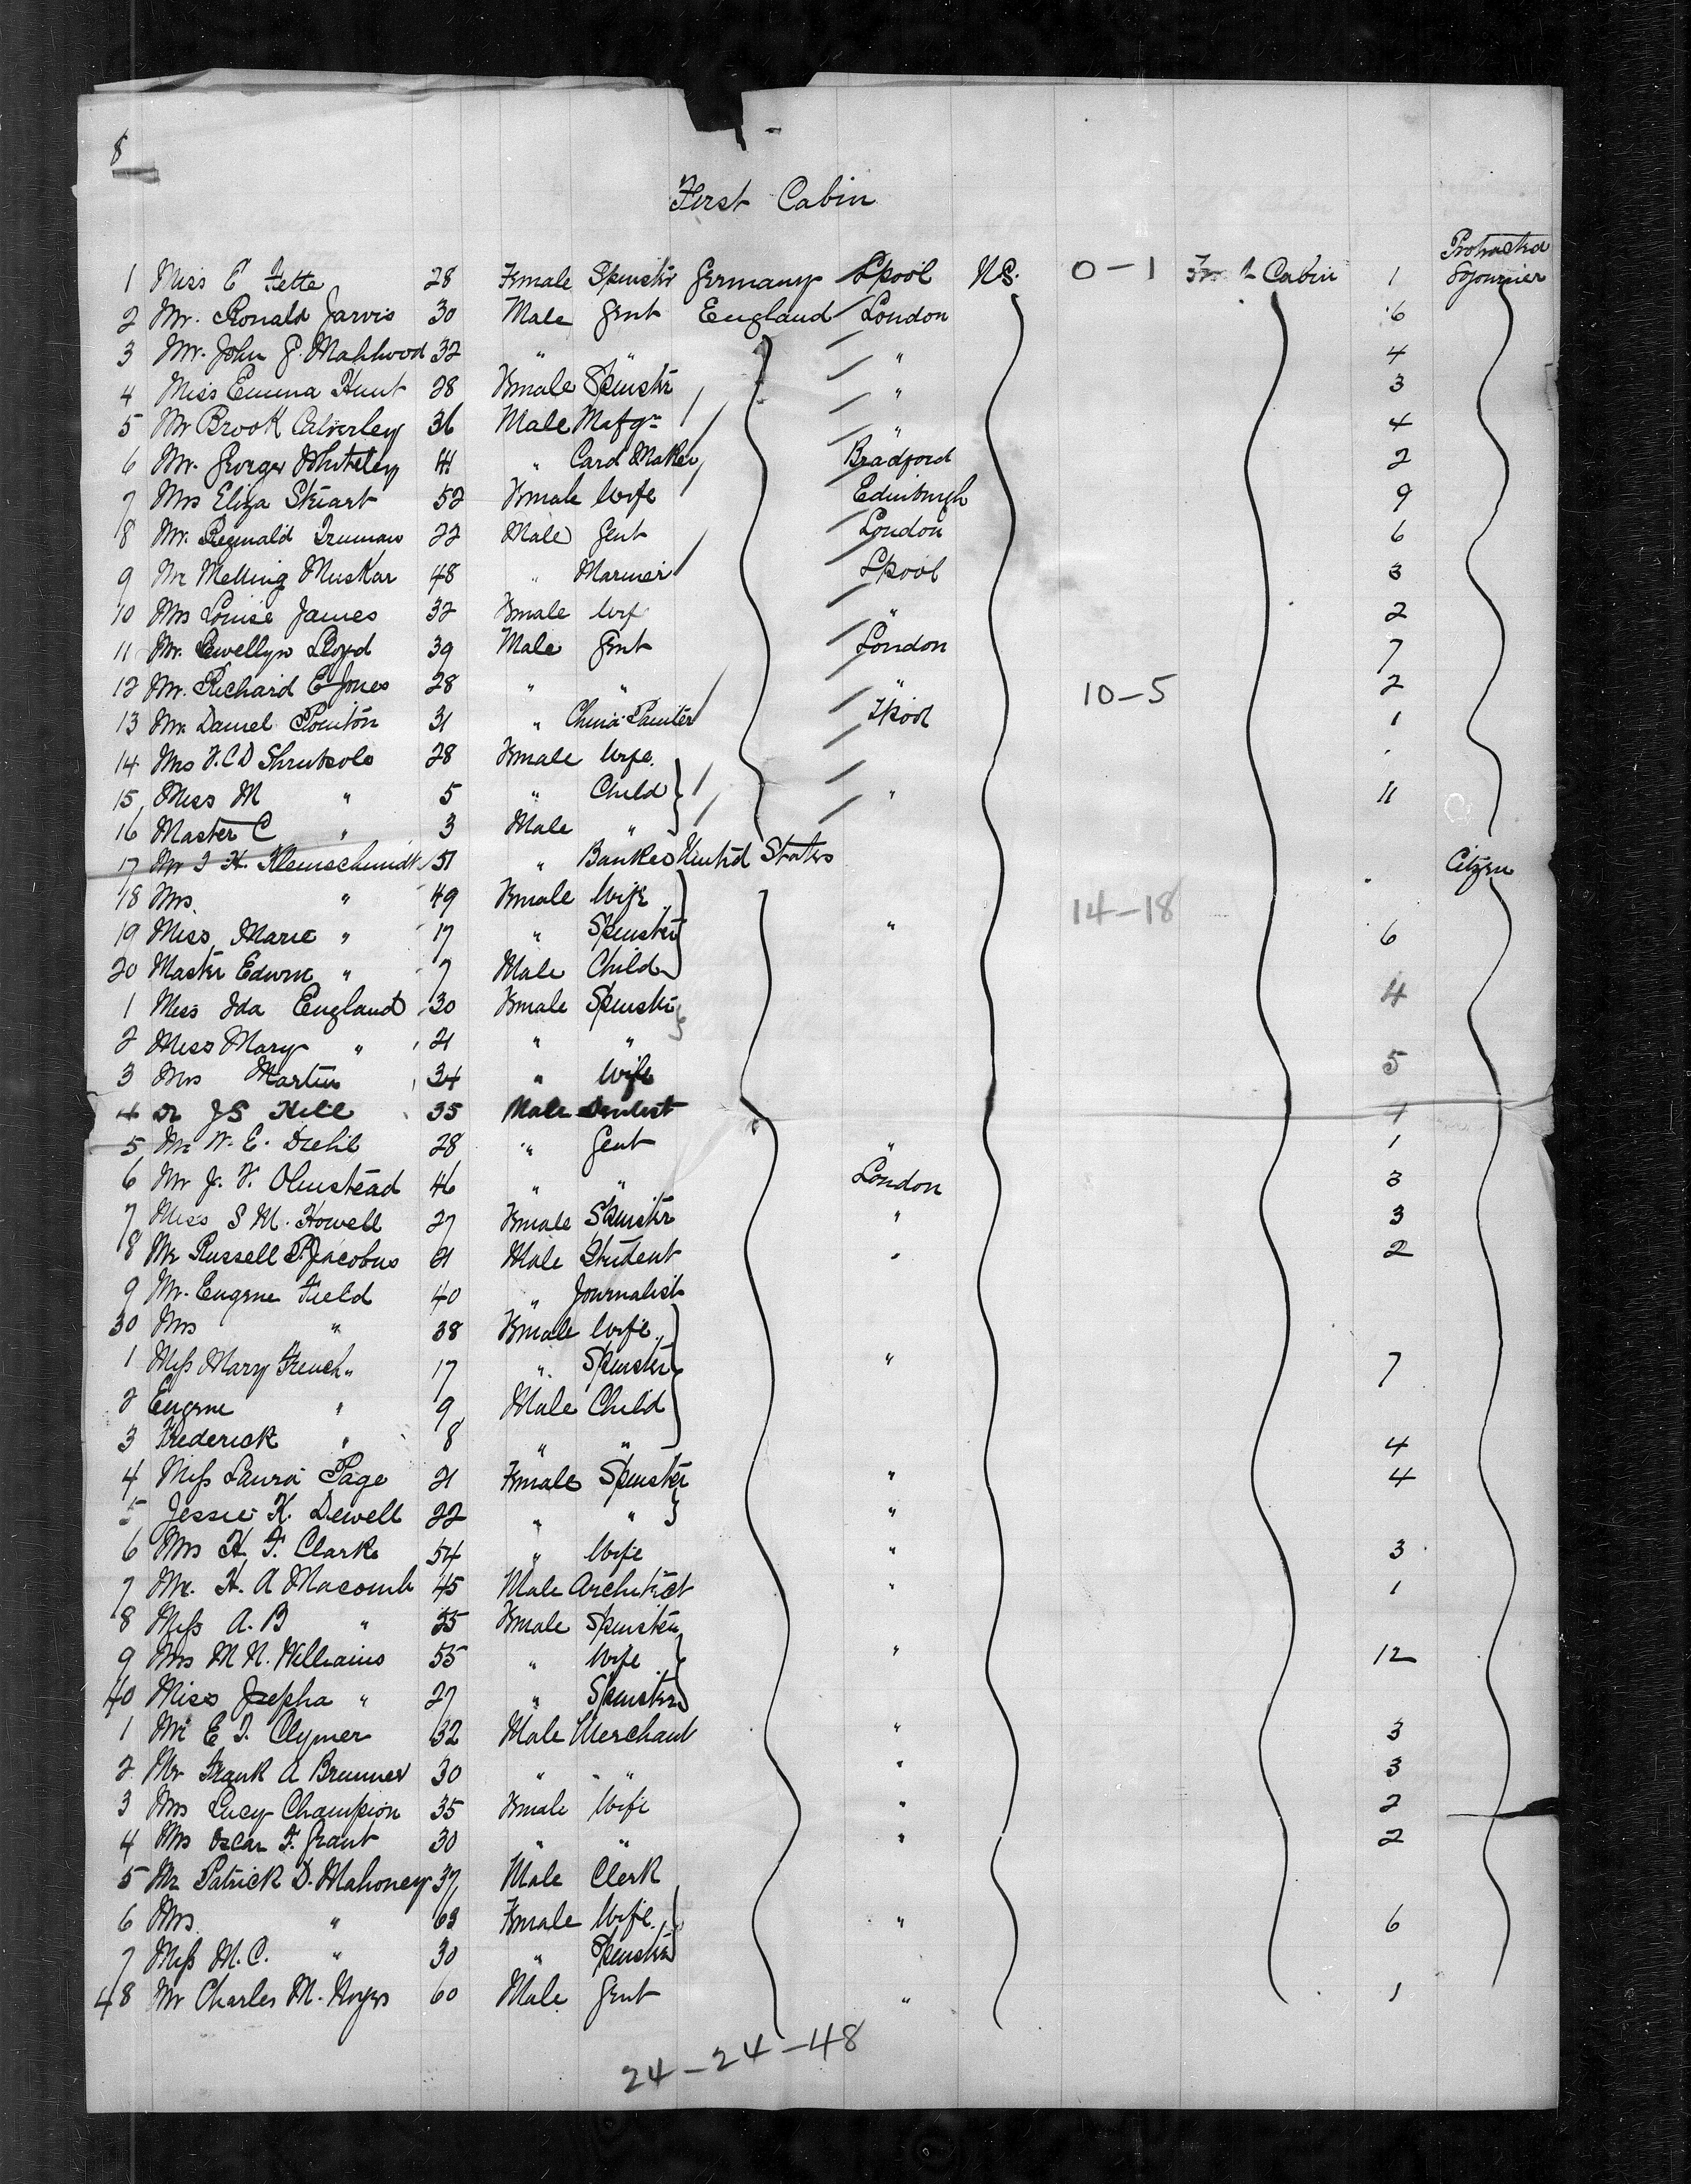 8
First Cabin
Protracted
1 Miss E Fette 28 Female Spinster Germany L'pool U.S. 0-1 Cabin 1 Sojourner
2 Mr. Ronald Jarvis 30 Male Gent England London 6
3 Mr. John G. Mahlwood 32 " " " 4
4 Miss Emma Hunt 28 Female Spinster " 3
5 Mr Brook Calverley 36 Male Mafgr " 4
6 Mr. George Whiteley 41 " Card Maker Bradford 2
7 Mrs Eliza Stuart 52 Female Wife Edinburgh 9
8 Mr. Reginald Truman 22 Male Gent London 6
9 Mr Melling Muskar 48 " Mariner L'pool 3
10 Mrs Louise James 32 Female Wife " 2
11 Mr. Llewellyn Lloyd 39 Male Gent London 7
12 Mr. Richard E Jones 28 " " " 10-5 2
13 Mr. Daniel Pointon 31 " China Painter L'pool 1
14 Mrs F.C.D Shrubsole 28 Female Wife
15 Miss M " 5 " Child " 11
16 Master C " 3 Male "
17 Mr. H. Kleinschmidt 51 " Banker United States Citizen
18 Mrs " 49 Female Wife 14-18
19 Miss Marie " 17 " Spinster " 6
20 Master Edwin " 7 Male Child
1 Miss Ida England 30 Female Spinster 4
2 Miss Mary " 21 " "
3 Mrs Martin 34 " Wife 5
4 Dr J S Hill 35 Male Dentist 1
5 Mr W. E. Diehl 28 " Gent " 1
6 Mr J. F. Olmstead 46 " " London 3
7 Miss S M. Howell 27 Female Spinster " 3
8 Mr Russell P. Jacobus 21 Male Student " 2
9 Mr. Eugene Field 40 " Journalist
30 Mrs " 38 Female Wife
1 Miss Mary French " 17 " Spinster " 7
2 Eugene " 9 Male Child
3 Frederick " 8 " " 4
4 Miss Laura Page 21 Female Spinster " 4
5 Jessie K. Dewell 22 " " "
6 Mrs H. F. Clark 54 " Wife " 3
7 Mr. H. A Macomb 45 Male Architect " 1
8 Miss A. B " 35 Female Spinster
9 Mrs M N. Williams 55 " Wife " 12
40 Miss Josepha " 27 " Spinster
1 Mr E T. Clymer 32 Male Merchant " 3
2 Mr Frank A Brunner 30 " " " 3
3 Mrs Lucy Champion 35 Female Wife " 2
4 Mrs Oscar F. Grant 30 " " " 2
5 Mr Patrick D. Mahoney 37 Male Clerk
6 Mrs " 63 Female Wife " 6
7 Miss M. C. " 30 " Spinster
48 Mr Charles M. 60 Male Gent " 1
24-24-48